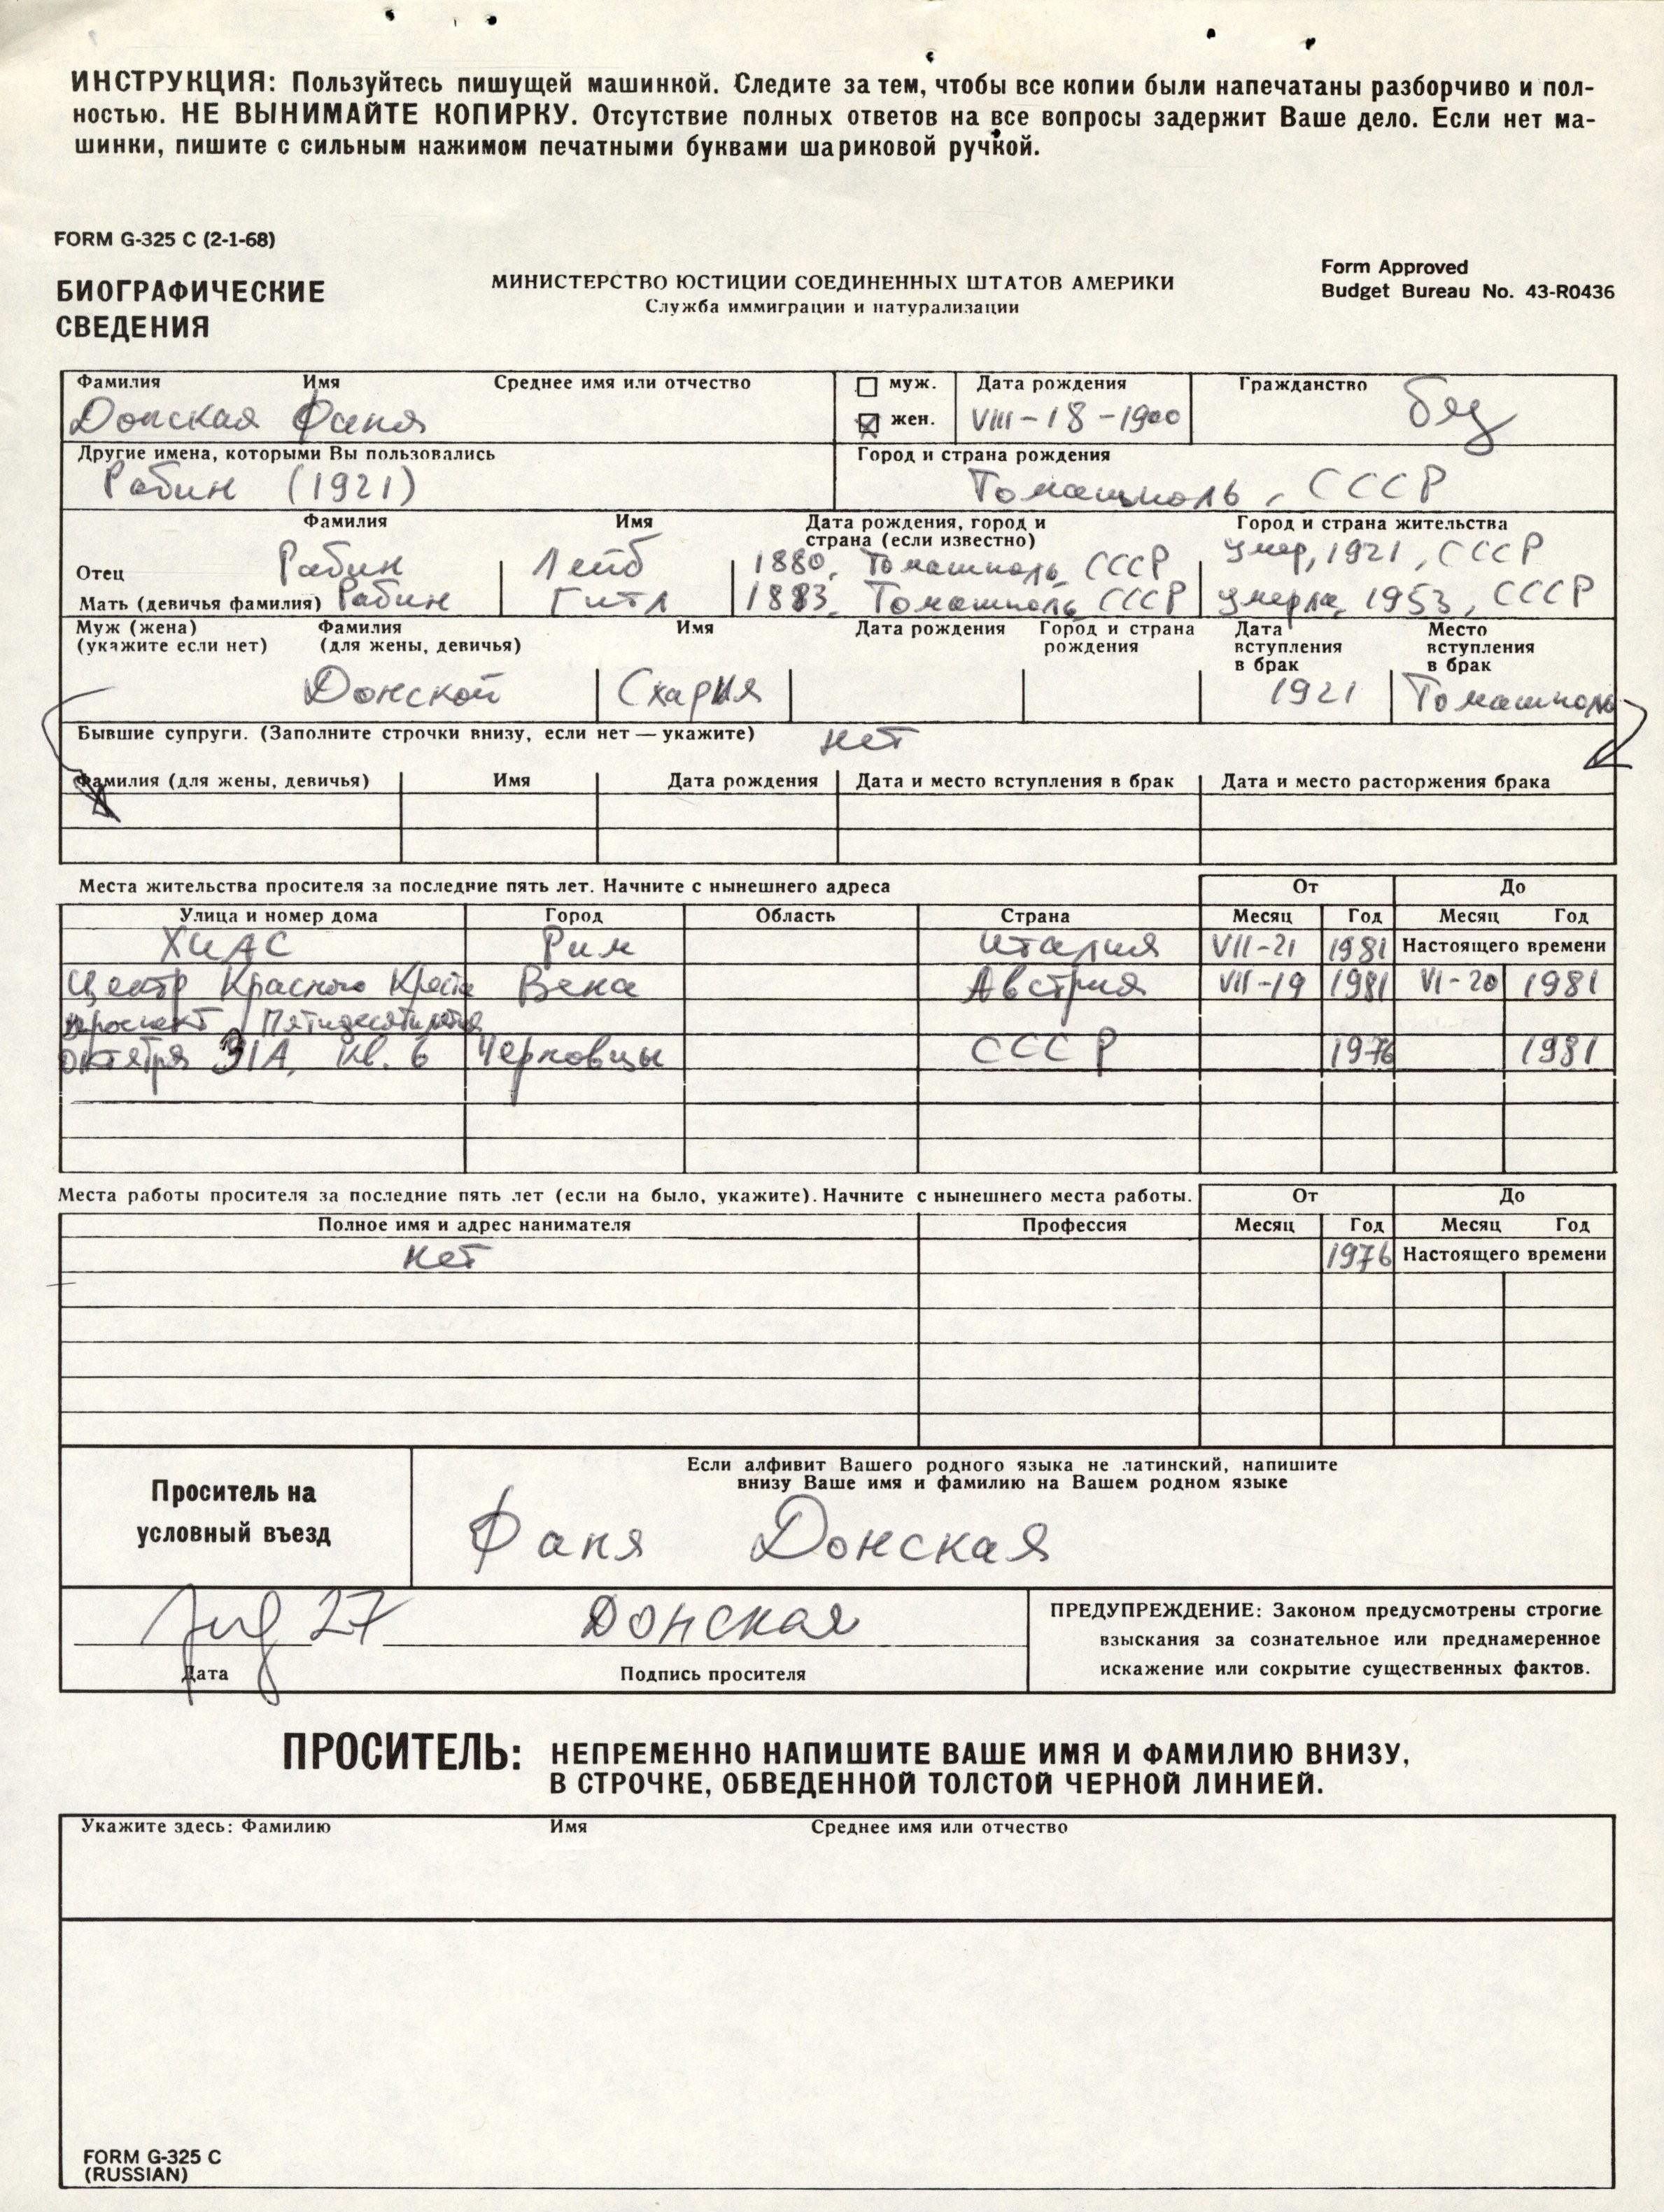 ИНСТРУКЦИЯ: Пользуйтесь пишущей машинкой. Следите за тем, чтобы все копии были напечатаны разборчиво и пол-
ностью. НЕ ВЫНИМАЙТЕ КОПИРКУ. Отсутствие полных ответов на все вопросы задержит Ваше дело. Если нет ма-
шинки, пишите с сильным нажимом печатными буквами шариковой ручкой.
FORM G-325 C (2-1-68)
БИОГРАФИЧЕСКИЕ
СВЕДЕНИЯ
МИНИСТЕРСТВО ЮСТИЦИИ СОЕДИНЕННЫХ ШТАТОВ АМЕРИКИ
Служба иммиграции и натурализации
Form Approved
Budget Bureau No. 43-R0436
Фамилия Имя Среднее имя или отчество муж. Дата рождения Гражданство
Донская Фаня жен. VIII-18-1900 без
Другие имена, которыми Вы пользовались Город и страна рождения
Рабин (1921) Томашполь, СССР
Фамилия Имя Дата рождения, город и Город и страна жительства
страна (если известно)
Отец Рабин Лейб 1880, Томашполь, СССР умер, 1921, СССР
Мать (девичья фамилия) Рабин Гитл 1883, Томашполь, СССР умерла, 1953, СССР
Муж (жена) Фамилия Имя Дата рождения Город и страна Дата Место
(укажите если нет) (для жены, девичья) рождения вступления вступления
в брак в брак
Донской Схария 1921 Томашполь
Бывшие супруги. (Заполните строчки внизу, если нет — укажите) нет
Фамилия (для жены, девичья) Имя Дата рождения Дата и место вступления в брак Дата и место расторжения брака
Места жительства просителя за последние пять лет. Начните с нынешнего адреса От До
Улица и номер дома Город Область Страна Месяц Год Месяц Год
ХИАС Рим Италия VII-21 1981 Настоящего времени
Центр Красного Креста Вена Австрия VII-19 1981 VI-20 1981
проспект Пятидесятилетия
октября 31А, кв. 6 Черновцы СССР 1976 1981
Места работы просителя за последние пять лет (если на было, укажите). Начните с нынешнего места работы. От До
Полное имя и адрес нанимателя Профессия Месяц Год Месяц Год
нет 1976 Настоящего времени
Проситель на
условный въезд
Если алфивит Вашего родного языка не латинский, напишите
внизу Ваше имя и фамилию на Вашем родном языке
Фаня Донская
27 Донская
Дата Подпись просителя
ПРЕДУПРЕЖДЕНИЕ: Законом предусмотрены строгие
взыскания за сознательное или преднамеренное
искажение или сокрытие существенных фактов.
ПРОСИТЕЛЬ: НЕПРЕМЕННО НАПИШИТЕ ВАШЕ ИМЯ И ФАМИЛИЮ ВНИЗУ,
В СТРОЧКЕ, ОБВЕДЕННОЙ ТОЛСТОЙ ЧЕРНОЙ ЛИНИЕЙ.
Укажите здесь: Фамилию Имя Среднее имя или отчество
FORM G-325 C
(RUSSIAN)